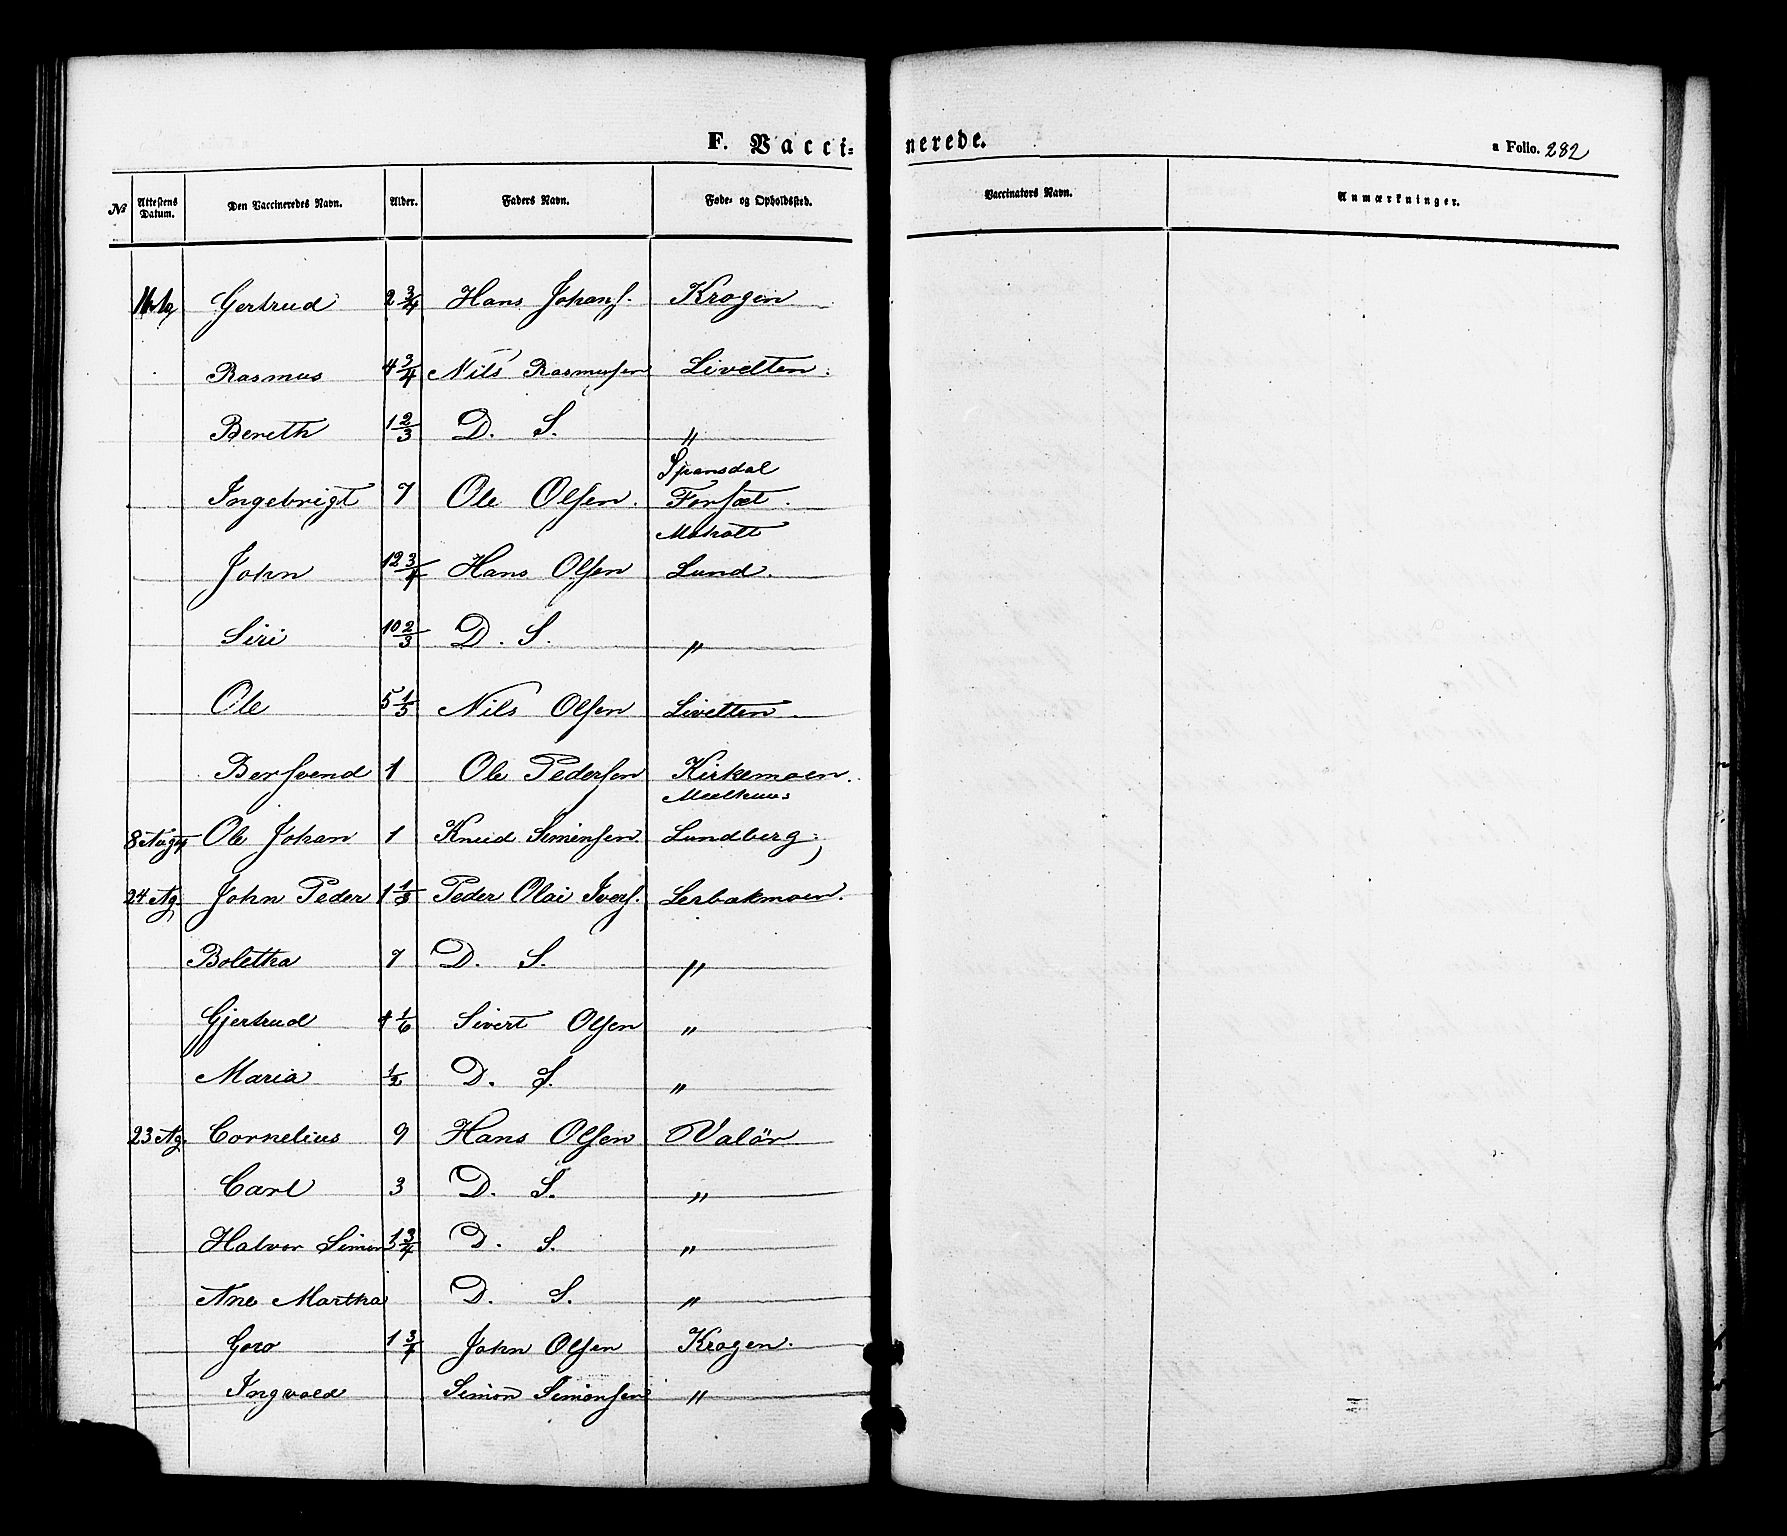 F. Vacci-nerede.
a Folio. 282
№ Attestens Datum. Den Vaccineredes Navn. Alder. Faders Navn. Føde- og Opholdssted. Vaccinators Navn. Anmærkninger.
Gertrud 2 3/4 Hans Johans. Krogen
Rasmus 4 3/4 Nils Rasmussen Livelten
Bereth 1 2/3 D. S. "
Spansdal
Ingebrigt 7 Ole Olsen. Forsæt.
John 12 3/4 Hans Olsen Lund.
Siri 10 2/3 D. S. "
Ole 5 1/5 Nils Olsen Livelten
Bersvend 1 Ole Pedersen Kirkemoen.
Meelhuus
8 August Ole Johan 1 Knud Simensen. Lundberg
24 Ag. John Peder 1 1/3 Peder Olai Ivers. Lerbakmoen.
Boletha 7 D. S. "
Gjertrud 4 1/6 Sivert Olsen "
Maria 1/2 D. S. "
23 Ag. Cornelius 9 Hans Olsen Valör
Carl 3 D. S. "
Halvor Simon 1 3/4 D. S. "
Ane Martha D. S. "
Goro 1 3/4 John Olsen Krogen.
Ingvald Simon Simonsen "